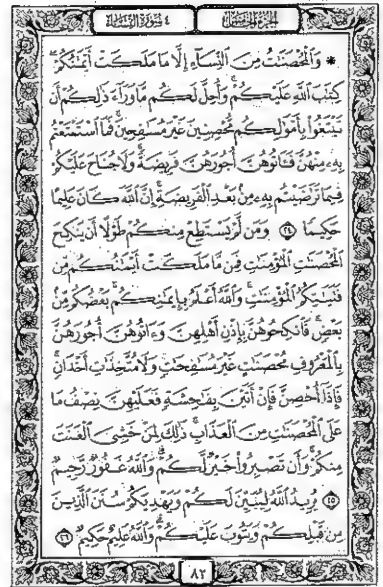 الجزء الخامس ٤ سورة النساء
* وَٱلۡمُحۡصَنَٰتُ مِنَ ٱلنِّسَآءِ إِلَّا مَا مَلَكَتۡ أَيۡمَٰنُكُمۡۖ
كِتَٰبَ ٱللَّهِ عَلَيۡكُمۡۚ وَأُحِلَّ لَكُم مَّا وَرَآءَ ذَٰلِكُمۡ أَن
تَبۡتَغُواْ بِأَمۡوَٰلِكُم مُّحۡصِنِينَ غَيۡرَ مُسَٰفِحِينَۚ فَمَا ٱسۡتَمۡتَعۡتُم
بِهِۦ مِنۡهُنَّ فَـَٔاتُوهُنَّ أُجُورَهُنَّ فَرِيضَةٗۚ وَلَا جُنَاحَ عَلَيۡكُمۡ
فِيمَا تَرَٰضَيۡتُم بِهِۦ مِنۢ بَعۡدِ ٱلۡفَرِيضَةِۚ إِنَّ ٱللَّهَ كَانَ عَلِيمًا
حَكِيمٗا ٢٤ وَمَن لَّمۡ يَسۡتَطِعۡ مِنكُمۡ طَوۡلًا أَن يَنكِحَ
ٱلۡمُحۡصَنَٰتِ ٱلۡمُؤۡمِنَٰتِ فَمِن مَّا مَلَكَتۡ أَيۡمَٰنُكُم مِّن
فَتَيَٰتِكُمُ ٱلۡمُؤۡمِنَٰتِۚ وَٱللَّهُ أَعۡلَمُ بِإِيمَٰنِكُمۚ بَعۡضُكُم مِّنۢ
بَعۡضٖۚ فَٱنكِحُوهُنَّ بِإِذۡنِ أَهۡلِهِنَّ وَءَاتُوهُنَّ أُجُورَهُنَّ
بِٱلۡمَعۡرُوفِ مُحۡصَنَٰتٍ غَيۡرَ مُسَٰفِحَٰتٖ وَلَا مُتَّخِذَٰتِ أَخۡدَانٖۚ
فَإِذَآ أُحۡصِنَّ فَإِنۡ أَتَيۡنَ بِفَٰحِشَةٖ فَعَلَيۡهِنَّ نِصۡفُ مَا
عَلَى ٱلۡمُحۡصَنَٰتِ مِنَ ٱلۡعَذَابِۚ ذَٰلِكَ لِمَنۡ خَشِيَ ٱلۡعَنَتَ
مِنكُمۡۚ وَأَن تَصۡبِرُواْ خَيۡرٞ لَّكُمۡۗ وَٱللَّهُ غَفُورٞ رَّحِيمٞ
٢٥ يُرِيدُ ٱللَّهُ لِيُبَيِّنَ لَكُمۡ وَيَهۡدِيَكُمۡ سُنَنَ ٱلَّذِينَ
مِن قَبۡلِكُمۡ وَيَتُوبَ عَلَيۡكُمۡۗ وَٱللَّهُ عَلِيمٌ حَكِيمٞ ٢٦
٨٢